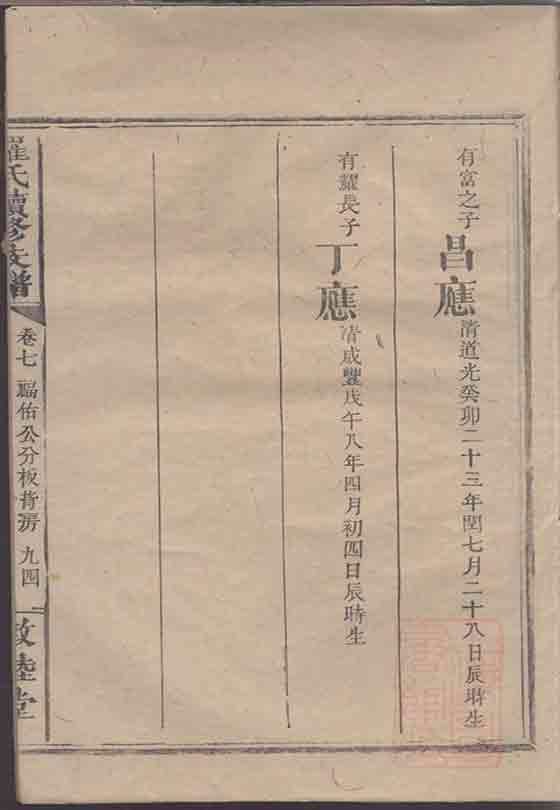 有富之子 昌應 清道光癸卯二十三年閏七月二十八日辰時生
有耀長子 丁應 清咸豐戊午八年四月初四日辰時生
羅氏續修支譜 卷七 福佑公分板背房 九四 敦睦堂